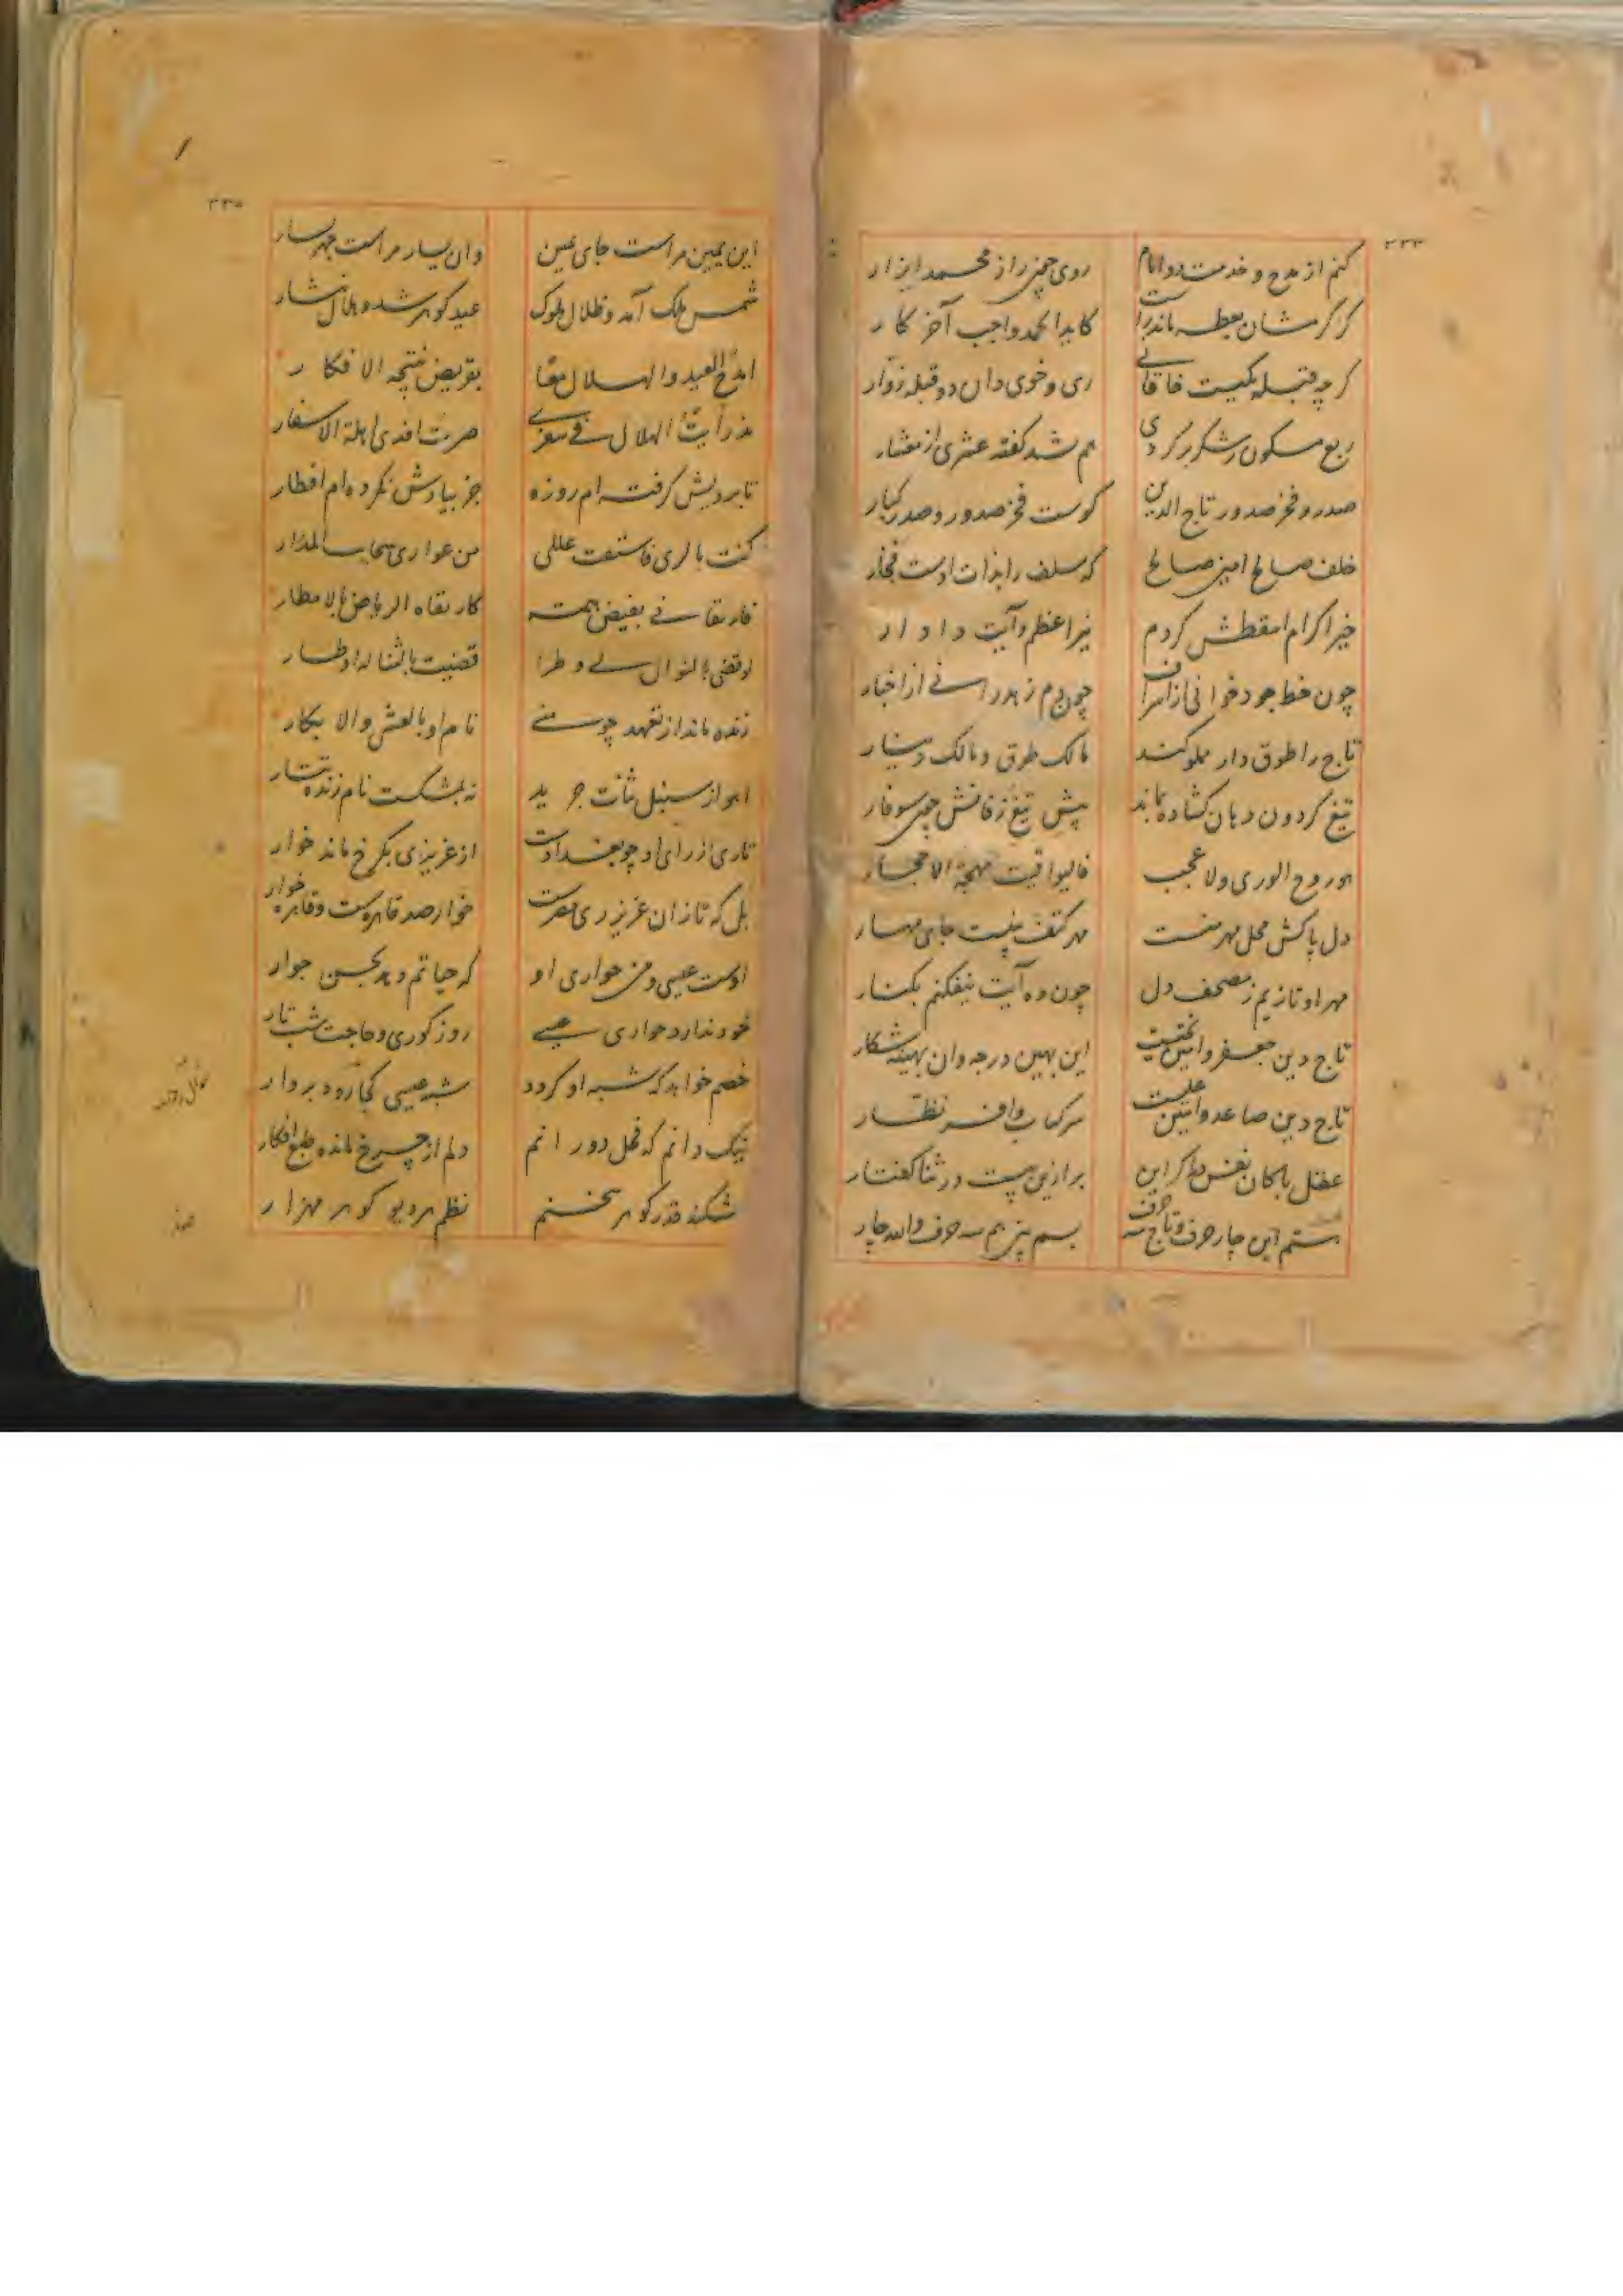 ۳۳۴
کنم از مدح و خدمت دو امام روی حجتی را ز محمد ایزار
کز کرمشان بعطسه ماند راست کابدا الحمد واجب آخر کار
گرچه قبله یکیست خاقانی ری و خوی دان دو قبله زوار
ربع مسکون شکر پر کردی هم شد گفته عشری از معشار
صدر و فخر صدور تاج الدین کوست فخر صدور و صدر کبار
خلف صالح امین صالح که سلف را بذات اوست فخار
خیر اکرام مقطش کردم نیر اعظم و آیت دادار
چون خط جود خوانی از اشراف چون دم زهد رانی از اخبار
تاج را طوق دار مملو کند مالک طوق و مالک دینار
تیغ گردون دهان گشاده بماند پیش تیغ زفانش چون سوفار
هو روح الوری ولا عجب فالیواقیت مهجة الاحجار
دل پاکش محل مهر منست مهر کتف نبیست جای مهار
مهر او تازیم ز مصحف دل چون ده آیت نیفکنم بکنار
تاج دین جعفر و امین یحییست این بهین درجه وان بهینه شکار
تاج دین صاعد و امین علیست سر کتاب و افسر نظار
عقل با کان نفس دیگر این برازین بیست در ثنا گفتار
بستم این چار حرف و تاج سه حرف بسم نیز هم سه حرف والله چار
۳۳۵
این یمین مراست جای عین وان یسار مراست جهر یسار
شمس ملک آمد و ظلال ملوک عید گوهر شد و هلال نثار
امدح العید والهلال معا بقریض نتیجة الافکار
مذ رأیت الهلال فی سفری صرت افدی اهلة الاسفار
تا برویش گرفته ام روزه جز بیادش نکرده ام افطار
کنت بالری فاستقت عللی من عواری سحاب المدار
فارتقانی بفیض همته کارتقاه الریاض بالامطار
او قضی بالنوال لی وطرا قضیت بالثنا له اوطار
زنده ماند از تعهد چو منی نام او بالعشی والابکار
آهو از سنبل تتار چرید نه بمشکست نام زنده تتار
تا ری از رای او چو بغدادست از عزیزی بکرخ ماند خوار
بل که تا زان عزیز ری مصرست خوار صد قاهره ست و قاهره خوار
اوست عیسی و من حواری او که حیاتم دهد بحسن جوار
خود ندارد حواری عیسی روز کوری و حاجت شب تار
خصم خواهد که شبه او گردد شبه عیسی کجا رود بر دار
نیک دانم که فحل دورانم دلم از چرخ مانده طبع افکار
شکند قدر گوهر سخنم نظم هر دیو گوهر مهزار